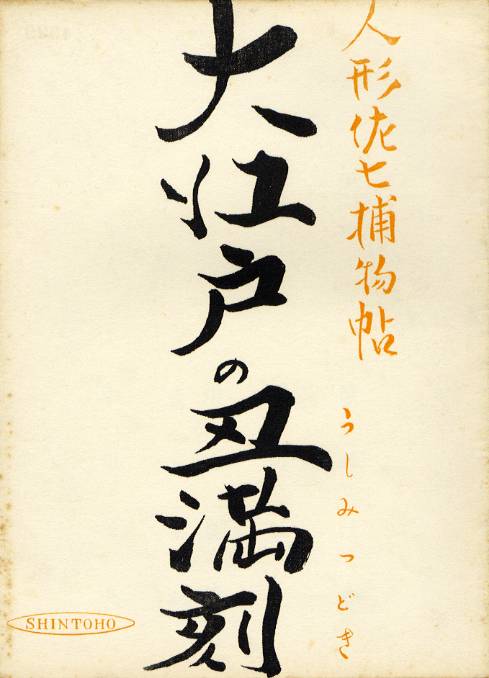 人形佐七捕物帖
大江戸の丑満刻
うしみつどき
SHINTOHO